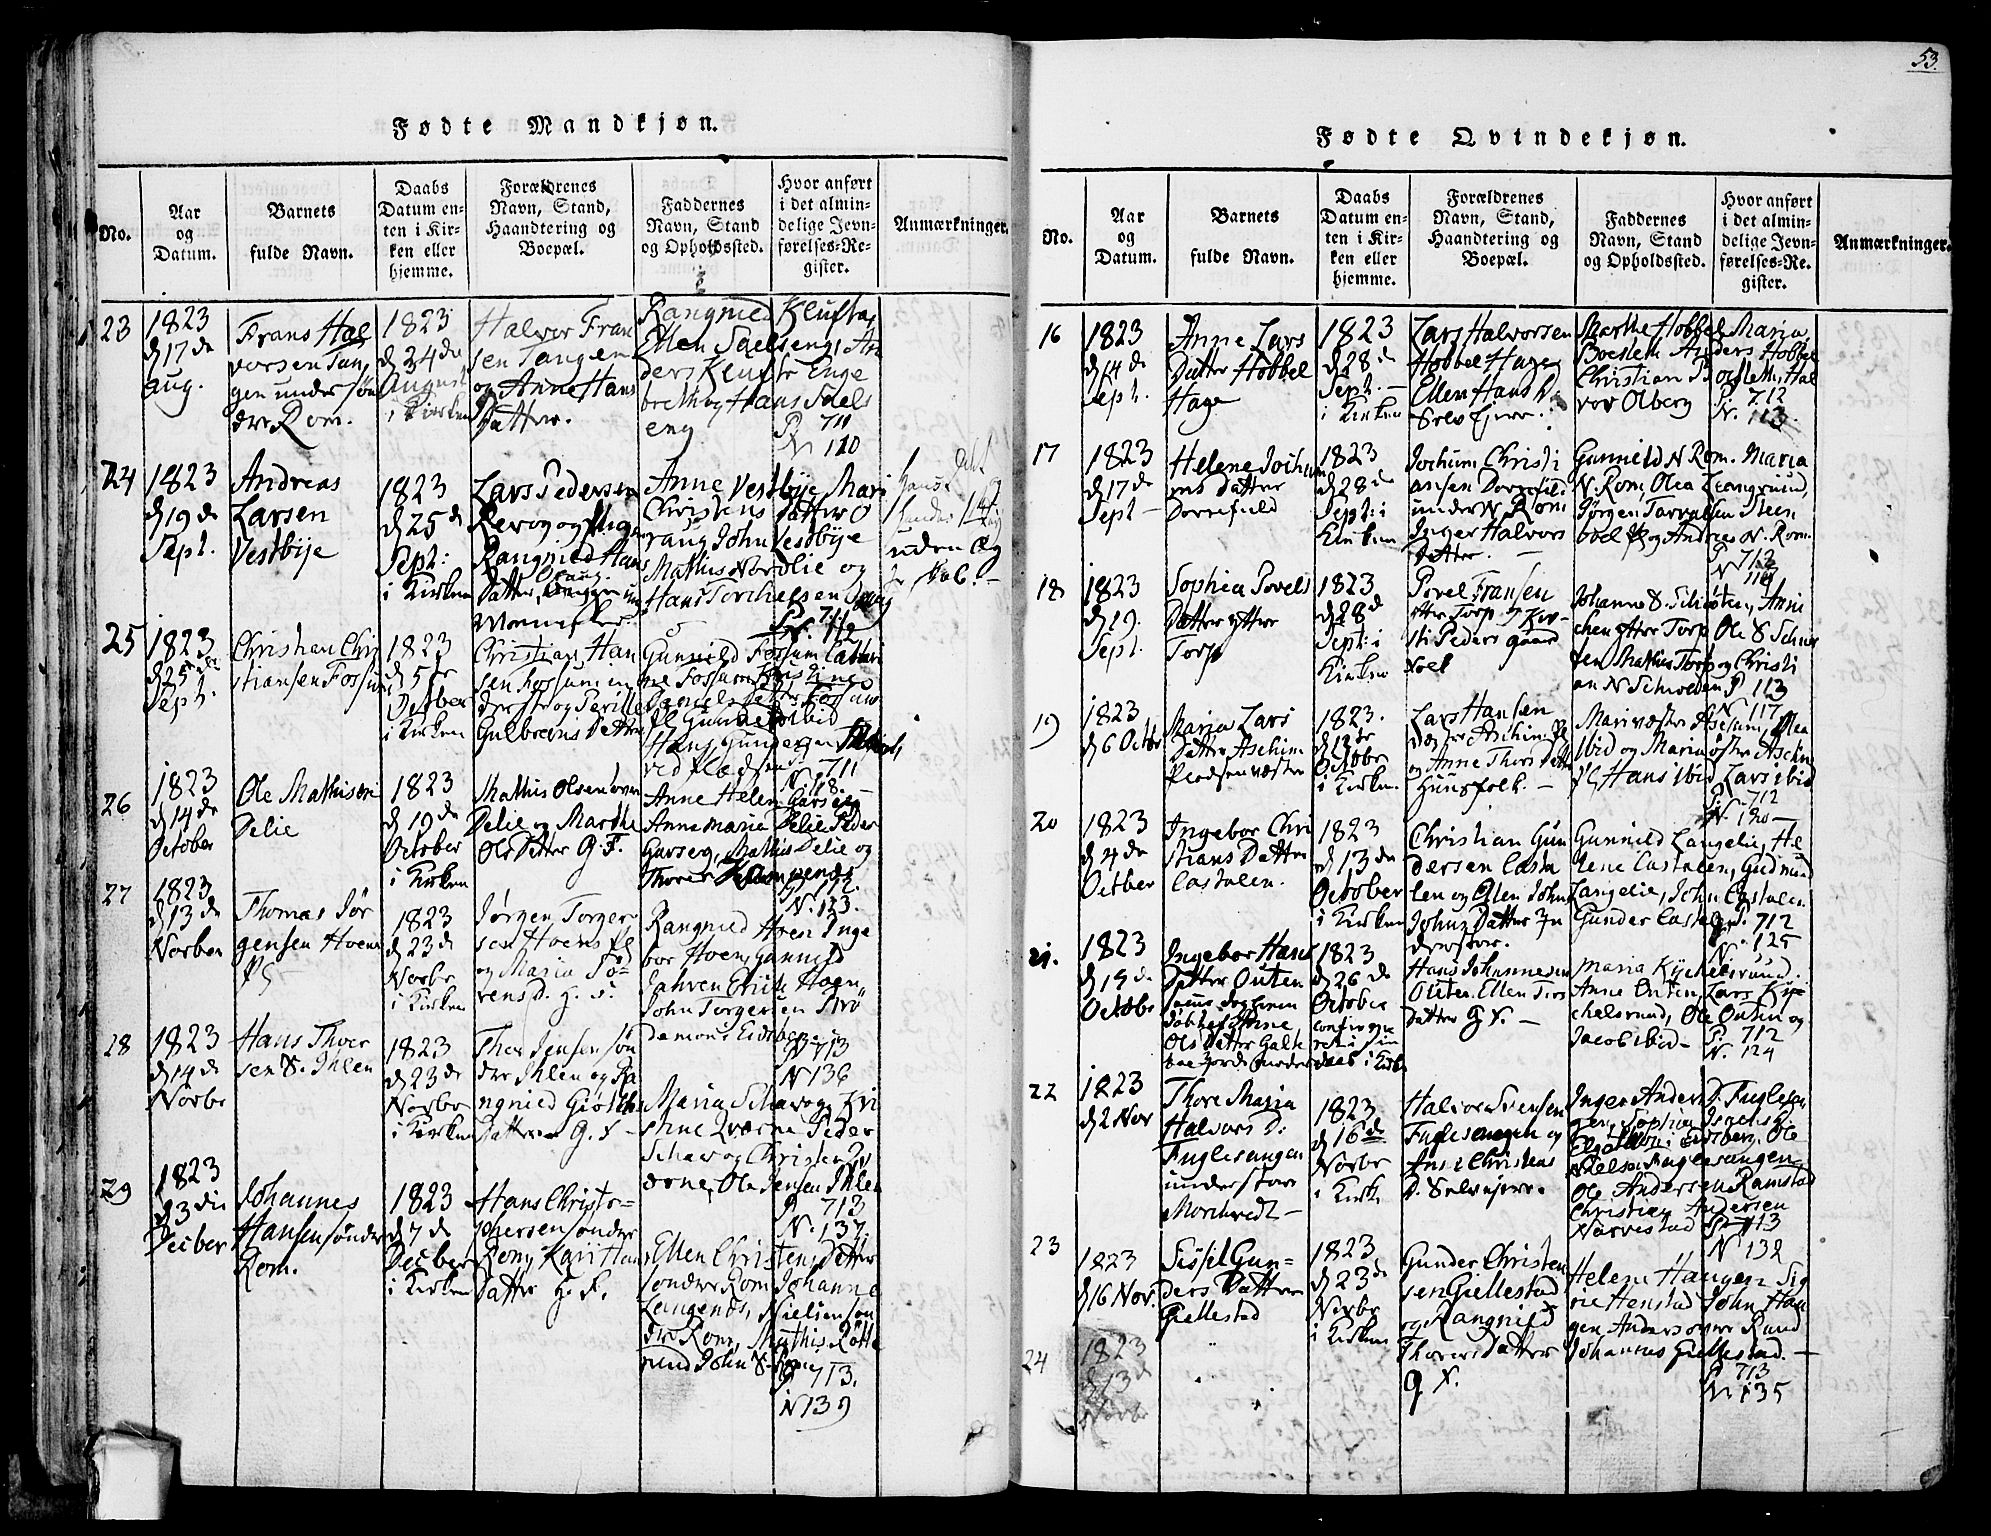 53.
Fødte Mandkjøn.
No.
Aar
og
Datum.
Barnets
fulde Navn.
Daabs
Datum en-
ten i Kir-
ken eller
hjemme.
Forældrenes
Navn, Stand,
Haandtering og
Boepæl.
Faddernes
Navn, Stand
og Opholdssted.
Hvor anført
i det almin-
delige Jevn-
førelses-Re-
gister.
Anmærkninger.
23
1823
d 17 de
aug.
Frans Hal
vorsen Tan
gen under søn
dre Rom.
1823
d 24 de
August
i Kirken
Halvor Fran
sen Tangen
og Anne Hans
Datter.
Rangnied Klufta,
Ellen Saelseng, An
ders Kluft
breth og Hans Saels
eng
P 711
N 110
24
1823
d 19 de
Sept.
Andreas
Larsen
Vestbÿe
1823
d 25 d
Sept:
i Kirken
Lars Pedersen
Rangnied Hans
Datter,
Anne Vestbÿe Mari
Christens Datter O
raug John Vestbÿe
Mathis Nordlie og
Hans Torchelsen
P. 711
N. 112
uden Æg
25
1823
d 25
Sept.
Christian Chri
stiansen Fossum
1823
d 5 te
October
i Kirken
Christian Han
sen Fossum in
derste og Pernille
Gulbrans Datter
Gunnild Fossum Cathri
ne Fossum Kristine
Daniels Datter Fossum
Hans Gundersen
ved Pladsen
711
N. 118.
26
1823
d 14 de
October
Ole Mathisen
Delie
1823
d 19 de
October
i Kirken
Mathis Olsen
Delie og Marthe
Ols Datter G. F.
Anne Helen Garseg
Anne Maria Delie Peder
Garseg, Mathis Delie og
Thorer
P. 712.
N. 123.
27
1823
d 13 de
Novber
Thomas Jør
gensen Hoens
Pl
1823
d 23 de
Novbr
i Kirken
Jørgen Torger
sen Hoens pl
og Maria Tø
rensd. g. F.
Rangnied Hoen Inge
bor Hoen, Gunnild
Jahren Erich Hoen,
John Torgersen Strø
demon i Eidsberg
P 713
N 136
28
1823
d 14 de
Novbr
Hans Thor
sen S. Ihlen
1823
d 23 de
Novbr
i Kirken
Thor Jensen søn
dre Ihlen og Ra
ngnied
Datter G. F.
Maria Schavog, Kri
stine Qværne Peder
Schavog Christen Qv
ærne, Ole Jensen Ihlen
P 713
N. 137
29
1823
d 3 die
Decber
Johannes
Hansen sønder
Rom.
1823
d 7 de
Decber
i Kirken
Hans Christo-
phersen sønder
Rom, Kari Han
Datter g. F.
Ellen Christens Datter
søndre Rom Johanne
Langends, Nielsen søn
dre Rom, Mathis Røtte
rud John S. Rom
P 713.
N 139
Fødte Qvindekjøn.
No.
Aar
og
Datum.
Barnets
fulde Navn.
Daabs
Datum en-
ten i Kir-
ken eller
hjemme.
Forældrenes
Navn, Stand,
Haandtering og
Boepæl.
Faddernes
Navn, Stand
og Opholdssted.
Hvor anført
i det almin-
delige Jevn-
førelses-Re-
gister.
Anmærkninger.
16
1823
d 14 de
Sept.
Anne Lars
Datter Hobbel
Hage
1823
d 28 de
Sept. —
i Kirken
Lars Halvorsen
Hobbel Hage
Ellen Hans D.
Selv Ejere.
Marthe Hobbel Maria
Boesleth Anders Hobbel
Christian Boesleth, Hal
vor Olberg
P. 712
N. 113.
17
1823
d 17 de
Sept —
Helene Jochum
ens Datter
Dorrefield
1823
d 28 de
Sept: i
Kirken
Jochum Christi
ansen Dorrefiel
under N. Rom
Inger Halvors
Datter. —
Gunnild N Rom. Maria
N. Rom, Olea Leangrund,
Jørgen Torvalsen Steen
boel pl og Andries N. Rom
P 712
N 114
18
1823
d 19.
Sept.
Sophia Povels
Datter ytter
Torp
1823
d 28 d
Sept: i
Kirken
Povel Fransen
ytter Torp og Kir-
sti Peders gaard
Noel
Johanne S. Schiøten, Anne
chen ytter Torp Ole S Schiø
ten Mathis Torp og Christi
an N Schiolden P 113
N. 117
19
1823
d 6 Octbr
Maria Lars
Datter Aschim
Pladsen væstre
1823.
d 12 te
Octobr
i Kirken
Lars Hansen
væstre Aschim Pl
og Anne Thors Datter
Huusfolk. —
Mari væstre Aschim, Olea
ibid og Maria østre Aschim
pl Hans ibid Lars ibid
P. 712
N. 120 —
20
1823
d 4 de
Octber
Ingebor Chri
stians Datter
Castalen.
1823
d 13 de
October
i Kirken
Christian Gun
dersen Casta
len og Ellen John
Johns Datter In
derster.
Gunnild Langelie, He
lene Castalen, Gudmund
Langelie, John Castalen
Gunder Castalen
P. 712
N. 125
21.
1823
d 15 de
Octobr
Ingebor Hans
Datter Outen
1823
d 26 de
October
i Kirke
Hans Johannesen
Outen. Ellen Tors
Datter G F. —
Maria Kÿchelsrund.
Anne Outen, Lars Kÿ-
chelsrund, Ole Outen og
Jacob ibid —
P. 712
N. 124
22
1823
d 2 Nov
Thore Maria
Halvors D.
Fuglesangen
under store
Morchvedt —
1823
d 16 de
Novbr
i Kirk
Halvor Svensen
Fuglesangen og
Anne Christens
D. Selvejere.
Inger Anders D. Fuglesan
gen, Sophia Isachs D.
i Eidsberg, Ole
Nielsen Fuglesangen
Ole Andersen Ramstad
Christian Andersen
Narvestad P. 713
N 132
23
1823
d 16 Nov.
Sissil Gun-
ders Datter
Giellestad
1823
d 23 de
Novbr
i Kirken
Gunder Christen
sen Giellestad
og Rangnied
Thorers Datter
g F.
Helene Haugen Sig
rie Henstad John Hau
gen Anders øvre Rund
Johannes Giellestad. —
P 713
N. 135
24
1823
d 13 d
Novbr